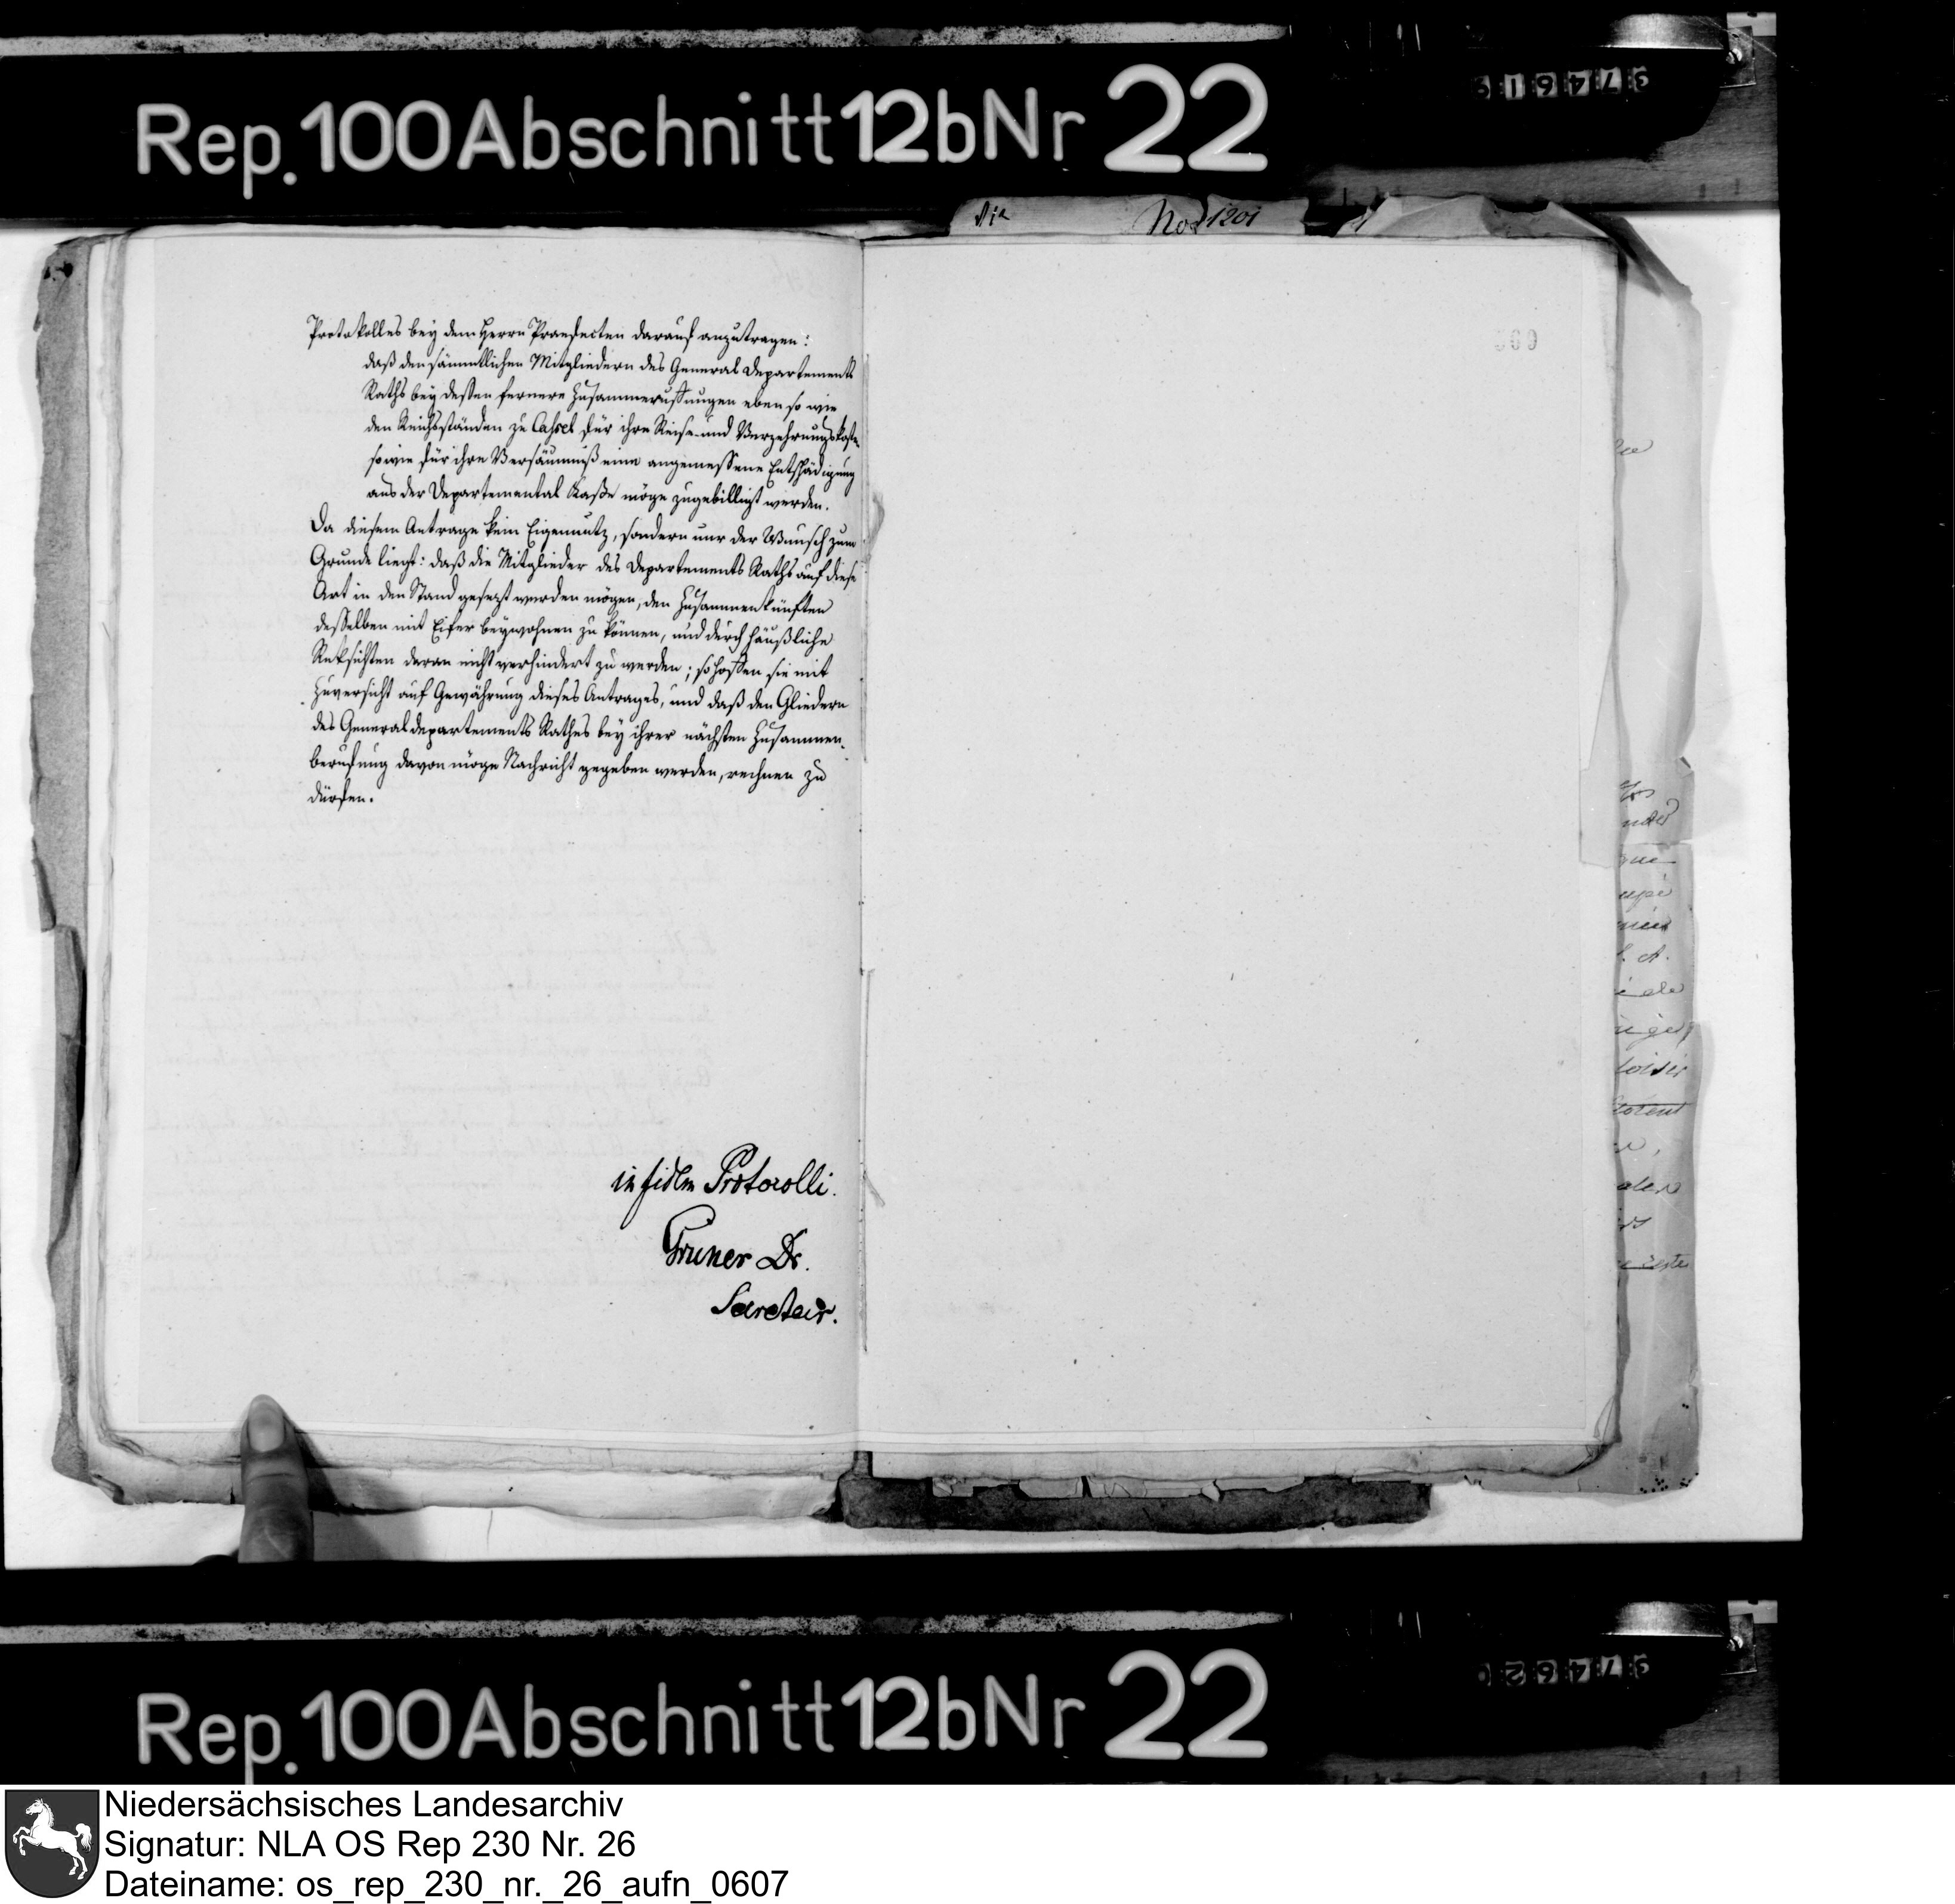 Rep. 100 Abschnitt 12b Nr 22
Die No 1201
369
Protokolles bey dem Herrn Praefecten darauf anzutragen:
daß den sämmtlichen Mitgliedern des General Departements
Raths bey deßen fernere Zusammenruffungen eben so wie
den Reichsständen zu Cassel für ihre Reise- und Verzehrungskosten
sowie für ihre Versäumniß eine angemessene Entschädigung
aus der Departemental Kaße möge zugebilligt werden.
Da diesem Antrage kein Eigennutz, sondern nur der Wunsch zum
Grunde liegt: daß die Mitglieder des Departements Raths auf diese
Art in den Stand gesezt werden mögen, den Zusammenkünften
desselben mit Eifer beywohnen zu können, und durch häußliche
Rüksichten daran nicht verhindert zu werden; so hoffen sie mit
Zuversicht auf Gewährung dieses Antrages, und daß den Gliedern
des Generaldepartements Rathes bey ihrer nächsten Zusammen-
berufung davon möge Nachricht gegeben werden, rechnen zu
dürfen.
in fidem Protocolli.
Gruner Dr.
Secretair.
Rep. 100 Abschnitt 12b Nr 22
Niedersächsisches Landesarchiv
Signatur: NLA OS Rep 230 Nr. 26
Dateiname: os_rep_230_nr._26_aufn_0607